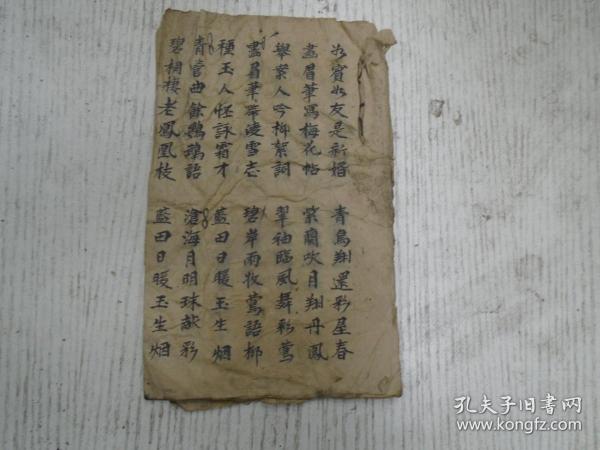 如賓如友是新婚
畫眉筆寫梅花帖
舉案人吟柳絮詞
畫眉筆帶凌雪志
種玉人怪詠霜才
青管曲餘鸚鵡語
碧桐棲老鳳凰枝
青鳥翔還彩屋春
紫蘭吹月翔丹鳳
翠袖臨風舞彩鶯
碧岸雨收鶯語柳
藍田日暖玉生烟
滄海月明珠献彩
藍田日暖玉生烟
孔夫子旧书网
www.kongfz.com